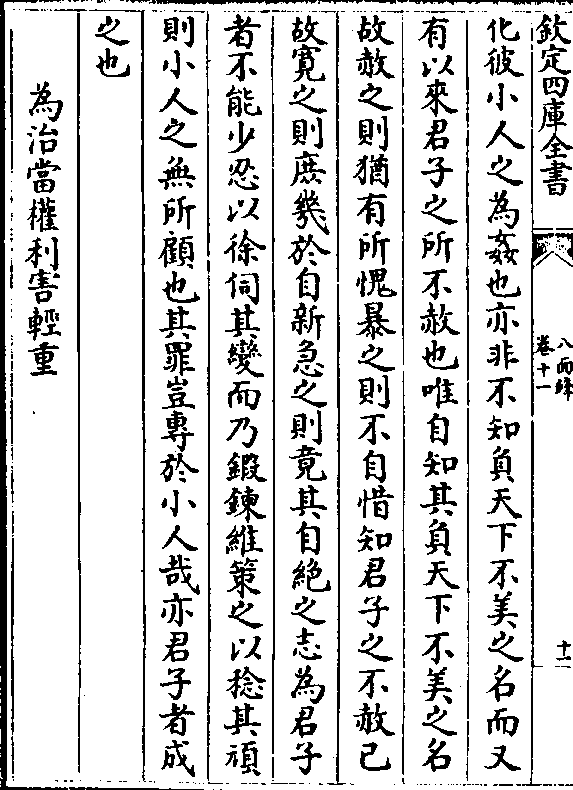 欽定四庫全書
八面鋒
卷十一
十二
化彼小人之為姦也亦非不知負天下不美之名而又
有以來君子之所不赦也唯自知其負天下不美之名
故赦之則猶有所愧暴之則不自惜知君子之不赦已
故寛之則庶幾於自新急之則竟其自絶之志為君子
者不能少忍以徐伺其變而乃鍛鍊維䇿之以稔其頑
則小人之無所顧也其罪豈專於小人哉亦君子者成
之也
為治當權利害輕重